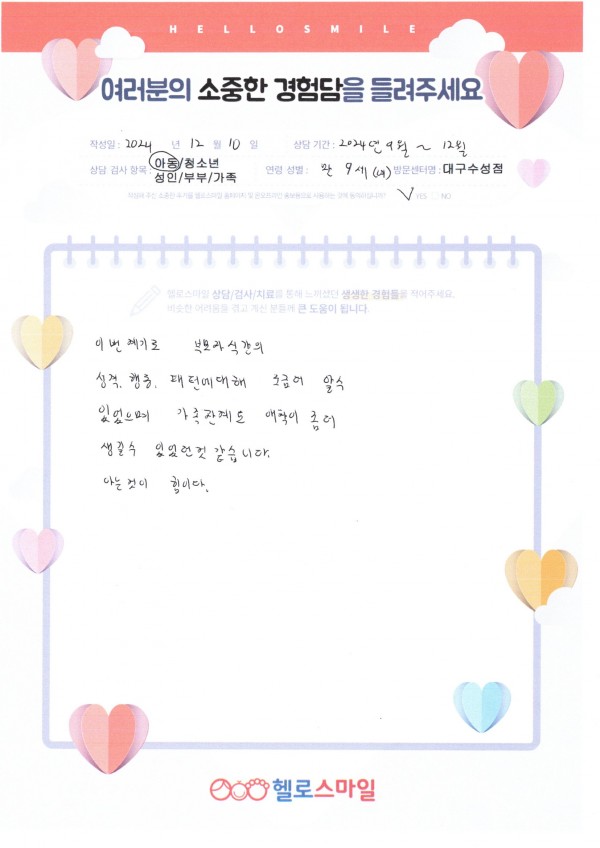 HELLOSMILE
여러분의 소중한 경험담을 들려주세요
작성일 : 2024 년 12 월 10 일 상담 기간 : 2024년 9월 ~ 12월
상담 검사 항목 : 아동/청소년 연령 성별 : 만 9세 (여) 방문센터명 : 대구수성점
성인/부부/가족
작성해 주신 소중한 후기를 헬로스마일 홈페이지 및 온오프라인 홍보용으로 사용하는 것에 동의하십니까? YES NO
헬로스마일 상담/검사/치료를 통해 느끼셨던 생생한 경험들을 적어주세요.
비슷한 어려움을 겪고 계신 분들께 큰 도움이 됩니다.
이번 계기로 부모자식간의
성격, 행동, 패턴에대해 조금더 알수
있었으며 가족관계도 애착이 좀더
생길수 있었던것 같습니다.
아는것이 힘이다.
헬로스마일